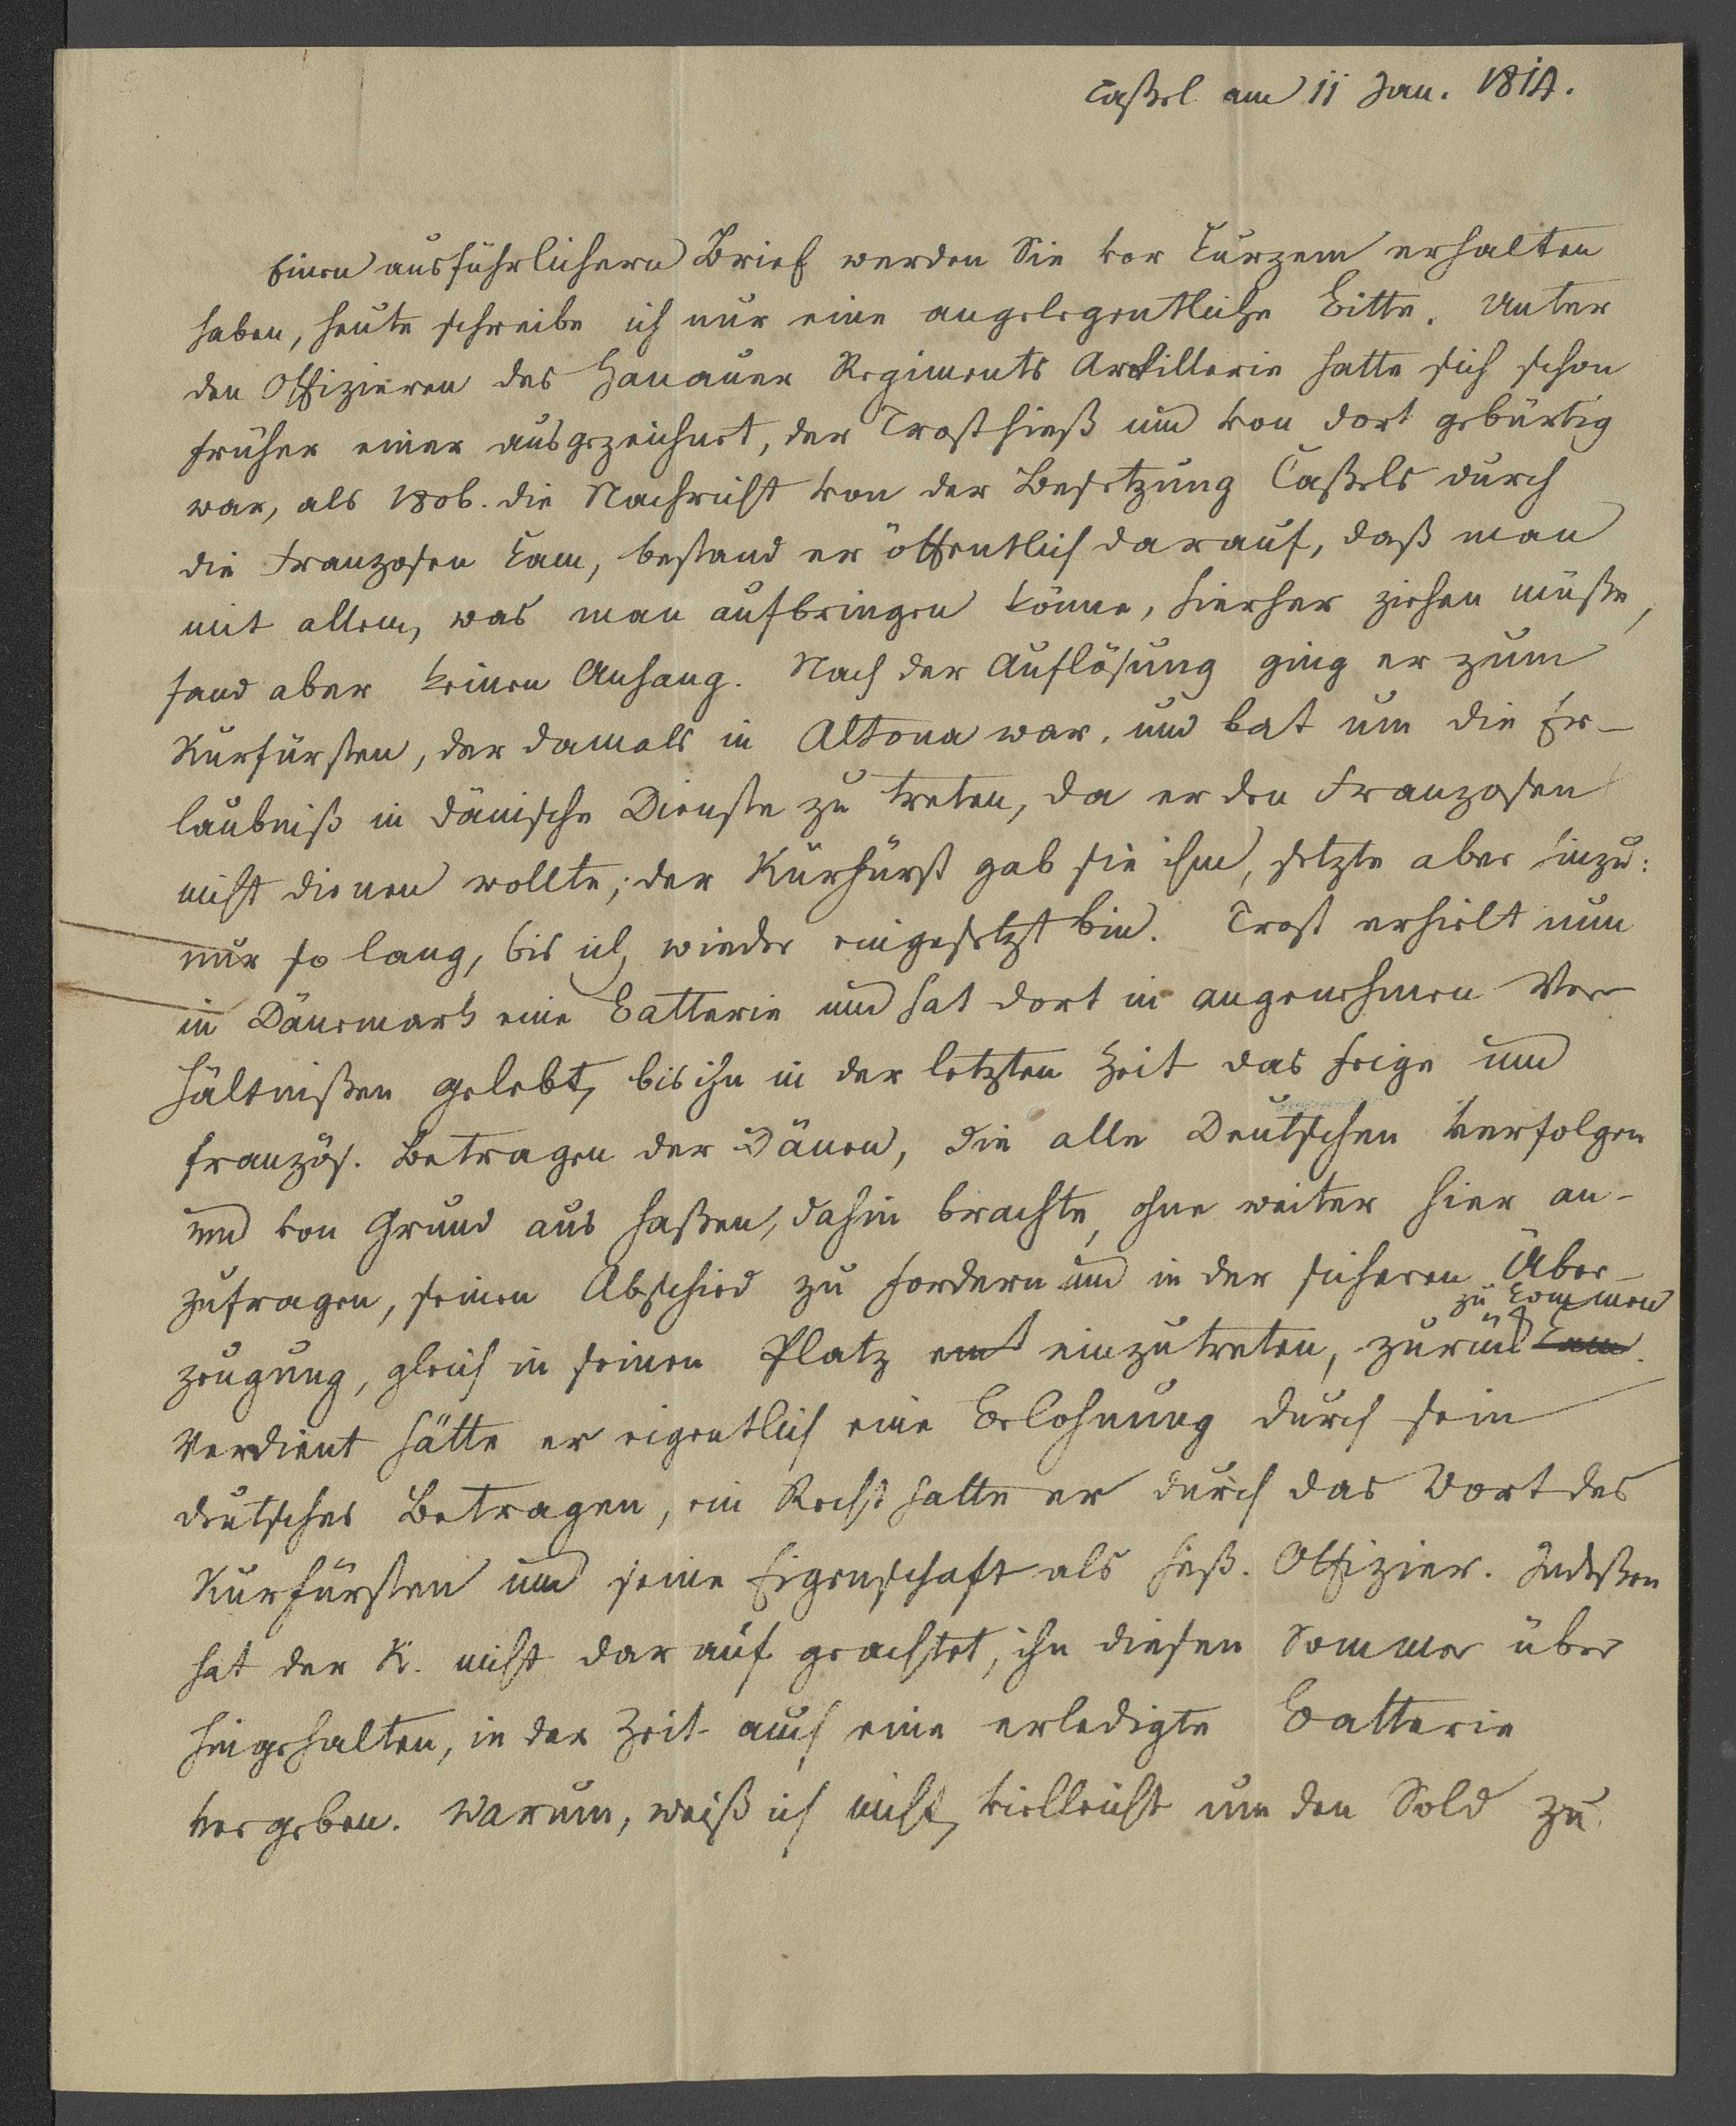 Caßel am 11 Jan. 1814.
Einen ausführlichern Brief werden Sie vor kurzem erhalten
haben, heute schreibe ich nur eine angelegentliche Bitte. Unter
den Offizieren des Hanauer Regiments Artillerie hatte sich schon
früher einer ausgezeichnet, der Trost hieß und von dort gebürtig
war, als 1806. die Nachricht von der Besetzung Caßels durch
die Franzosen kam, bestand er öffentlich darauf, daß man
mit allem, was man aufbringen könne, hierher ziehen müße,
fand aber keinen Anhang. Nach der Auflösung ging er zum
Kurfürsten, der damals in Altona war, und bat um die Er-
laubniß in dänische Dienste zu treten, da er den Franzosen
nicht dienen wollte; der Kurfürst gab sie ihm, setzte aber hinzu:
nur so lang, bis ich wieder eingesetzt bin. Trost erhielt nun
in Dänemark eine Batterie und hat dort in angenehmen Ver-
hältnißen gelebt, bis ihn in der letzten Zeit das feige und
französ. Betragen der Dänen, die alle Deutschen verfolgen
und von Grund aus haßen, dahin brachte, ohne weiter hier an-
zufragen, seinen Abschied zu fordern und in der sicheren Über-
zeugung, gleich in seinen Platz einzutreten, zurück zu kommen
Verdient hätte er eigentlich eine Belohnung durch sein
deutsches Betragen, ein Recht hatte er durch das Wort des
Kurfürsten und seine Eigenschaft als heß. Offizier. Indeßen
hat der K. nicht darauf geachtet, ihn diesen Sommer über
hingehalten, in der Zeit auch eine erledigte Batterie
vergeben. Warum, weiß ich nicht, vielleicht um den Sold zu